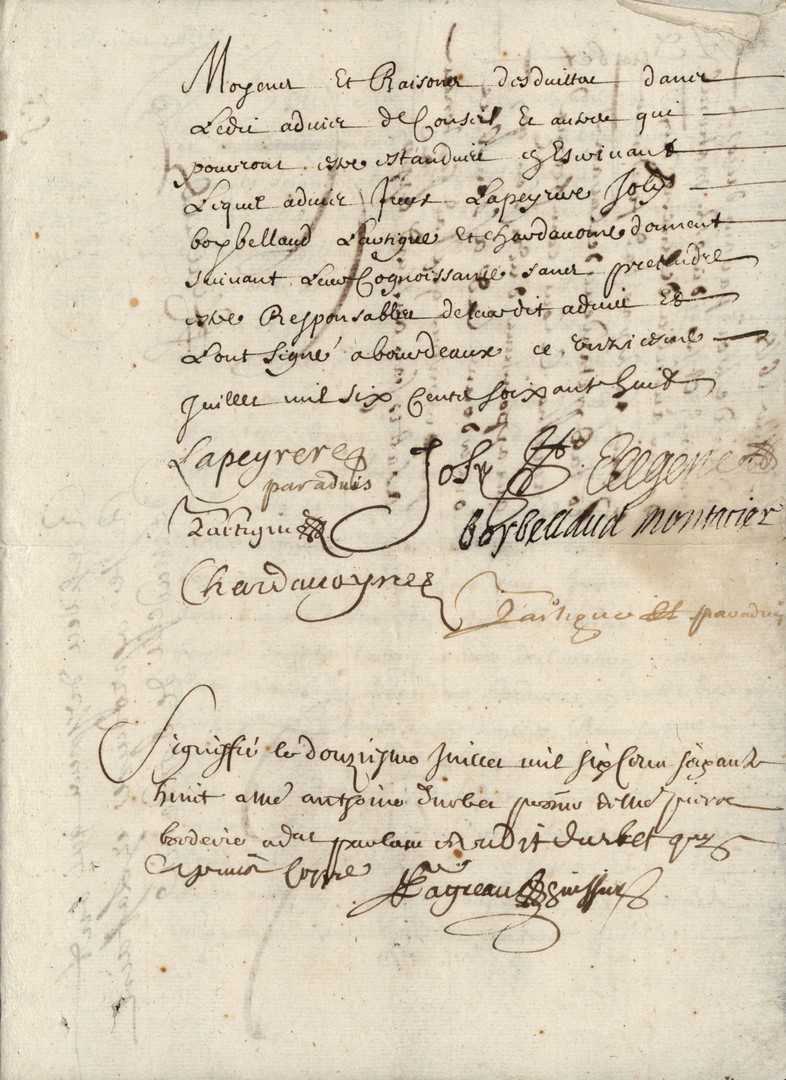 Moyens Et Raisons desduittes dans
Ledit advis de Conseil Et autres qui
pourront estre estandues Escrivant
Lequel advis Lapeyrere Joly
borbellaud Lartigue Et chardavoine donnent
suivant Leur Cognoissance sans pretendre
estre Responsables dudit advis Et
L'ont signé a bourdeaux ce unziesme
Juillet mil six Centz soixante huit
Lapeyrere
par advis
Joly
Lartigue
borbellaud montacier
Chardavoyne
Lartigue par advis
Signiffié le douziesme Juillet mil six Cens soixante
huit a Me anthoine durbet de Me pierre
parlant audit durbet
Coppie